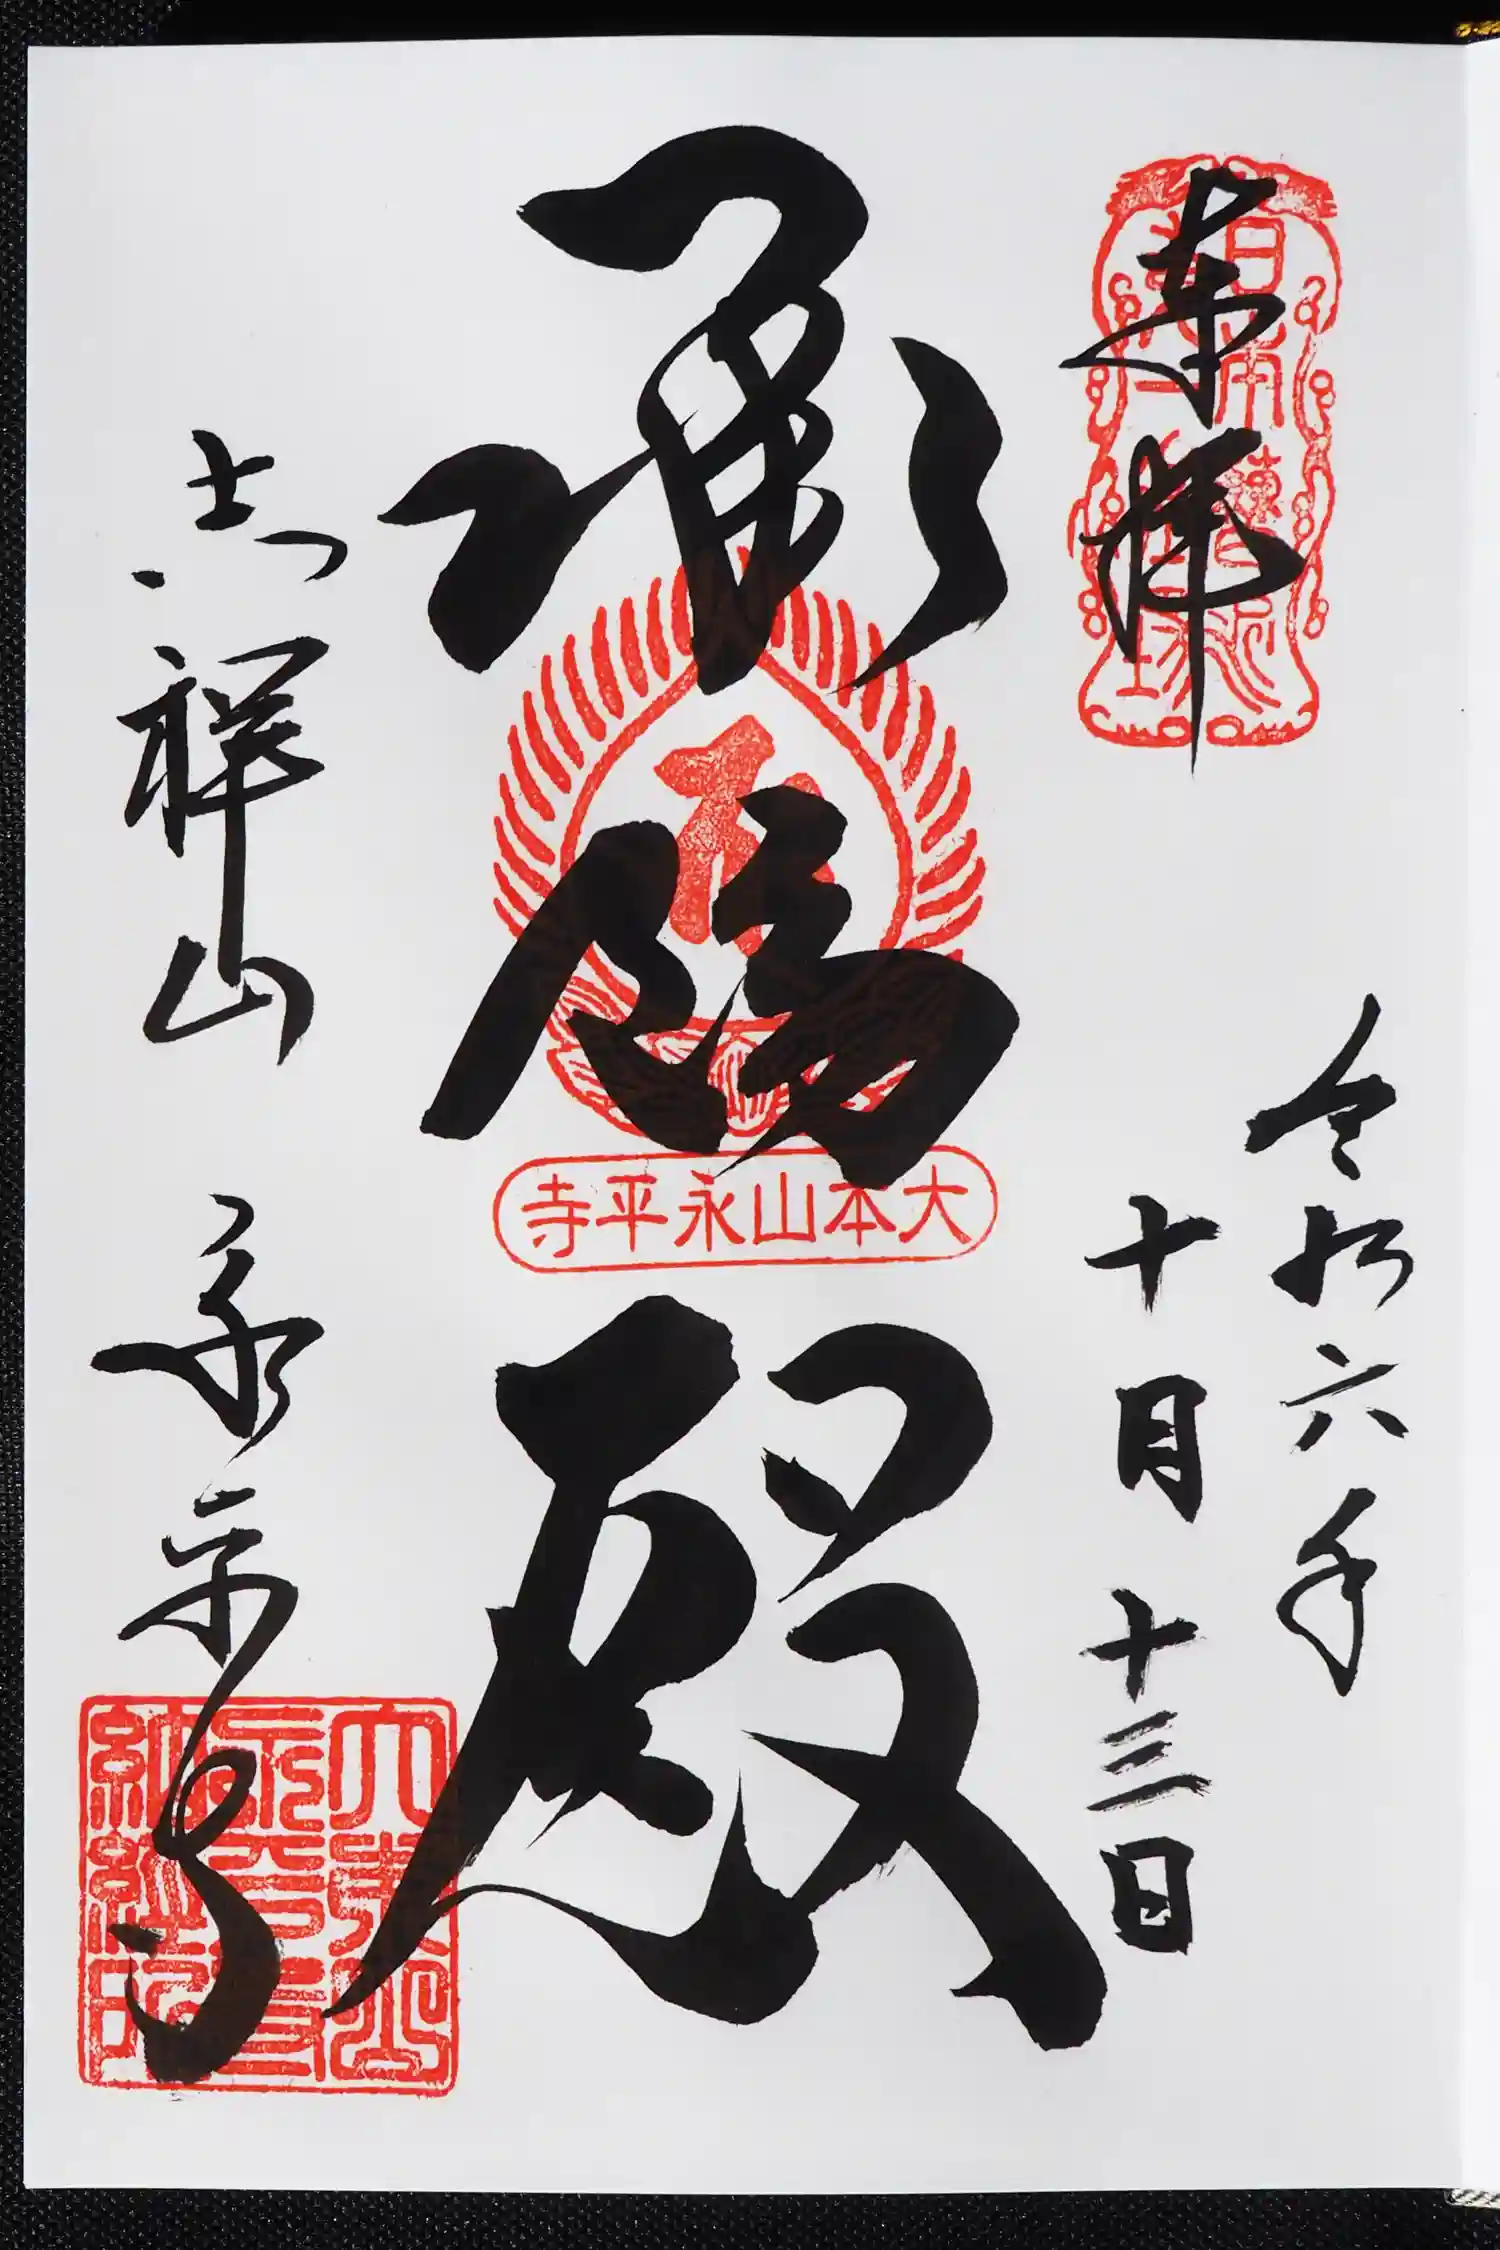 奉拝
令和六年
十月十三日
承陽殿
大本山永平寺
吉祥山 永平寺